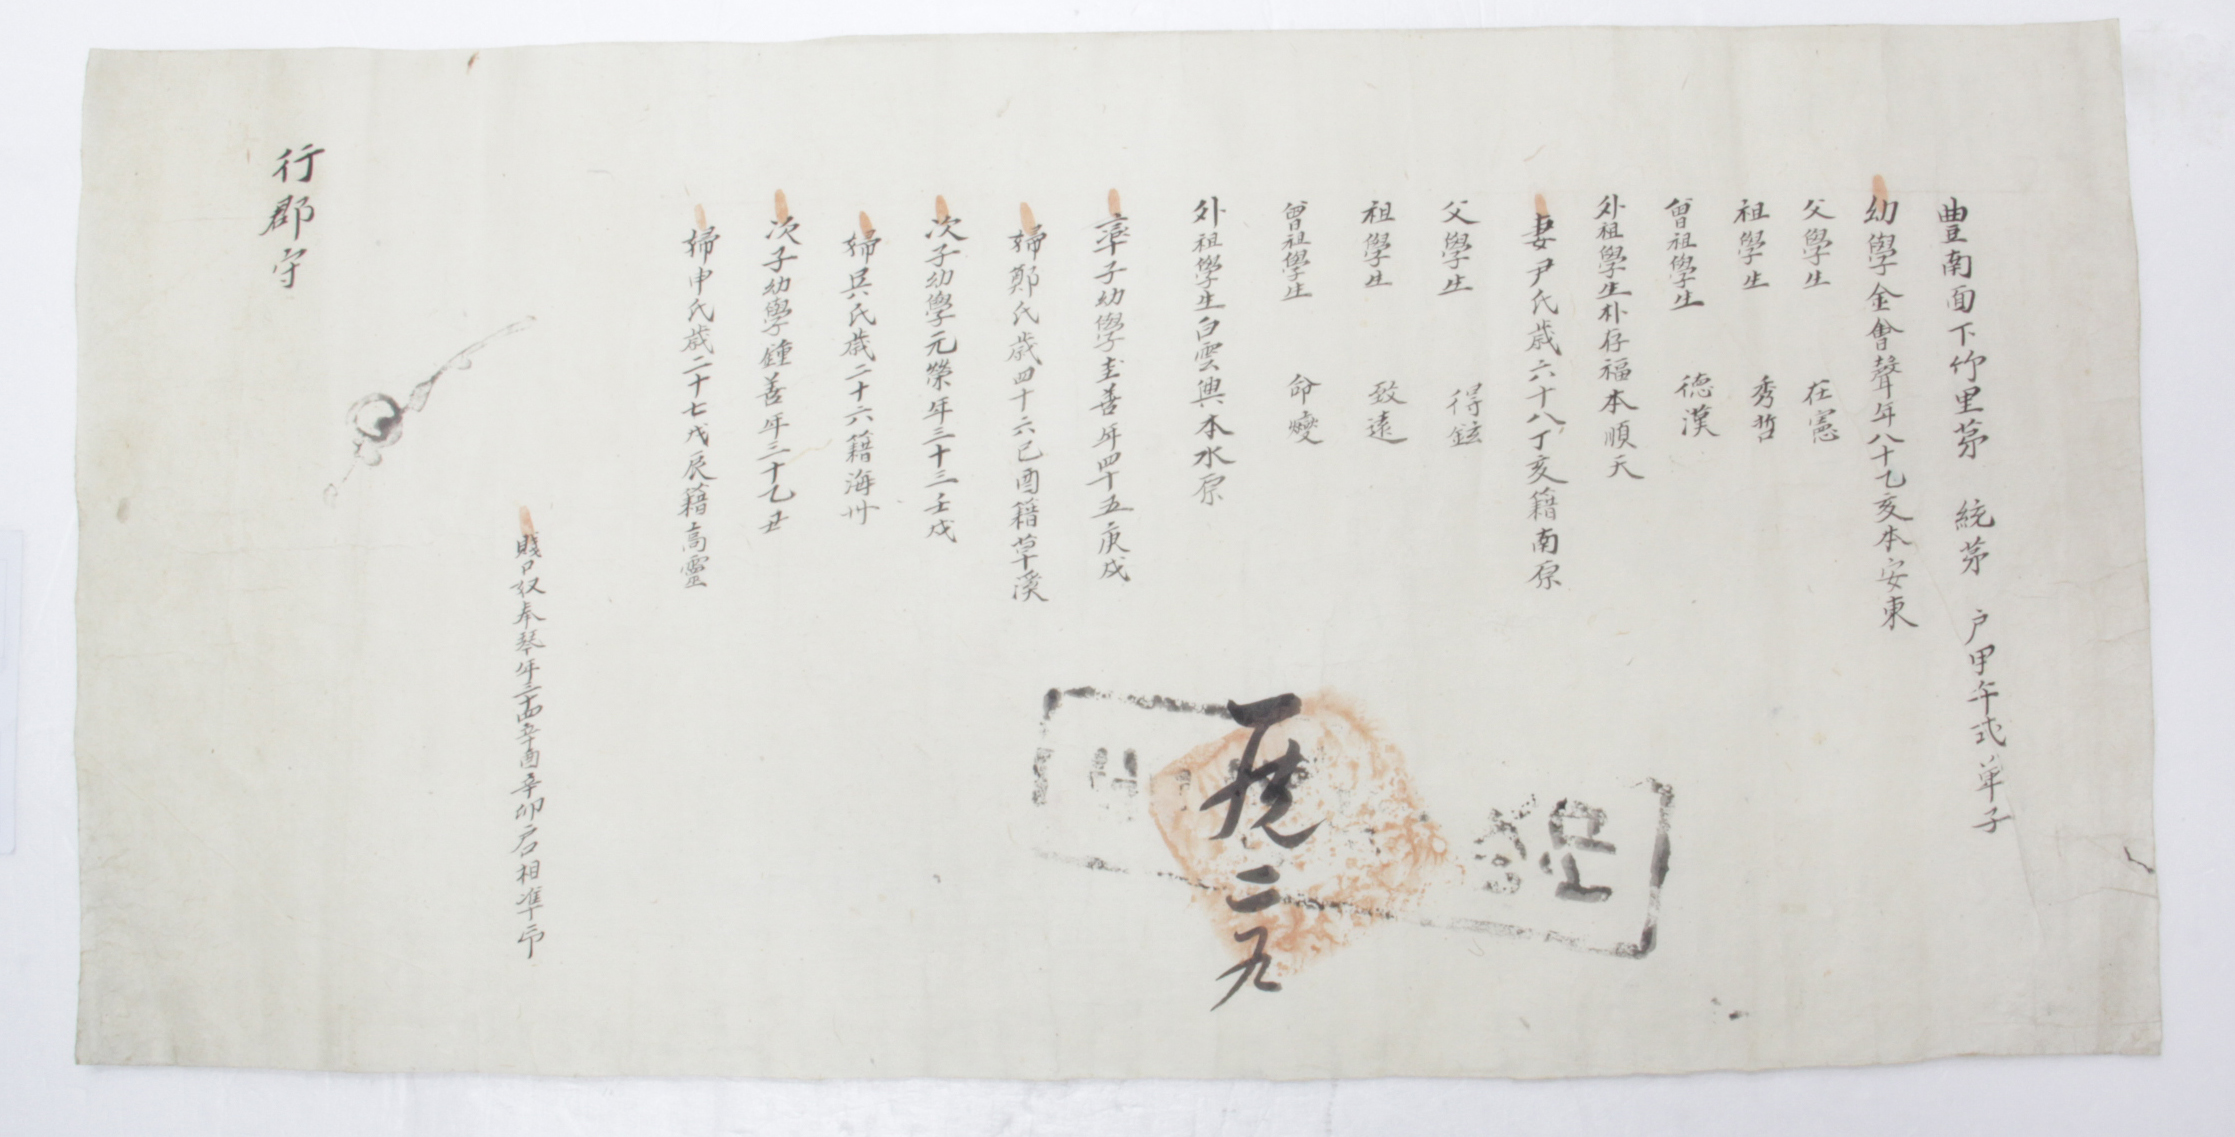 豊南面下竹里苐 統苐 户甲午式單子
幼學金會聲年八十乙亥本安東
父學生 在憲
祖學生 秀哲
曾祖學生 德漢
外祖學生朴存福本順天
妻尹氏歲六十八丁亥籍南原
父學生 得鉉
祖學生 致遠
曾祖學生 命燮
外祖學生白雲興本水原
率子幼學圭善年四十五庚戌
婦鄭氏歲四十六己酉籍草溪
次子幼學元榮年三十三壬戌
婦吳氏歲二十六籍海州
次子幼學鍾善年三十乙丑
婦申氏歲二十七戊辰籍高靈
賤口奴奉琴年三十四辛酉辛卯户相准印
二九
行郡守